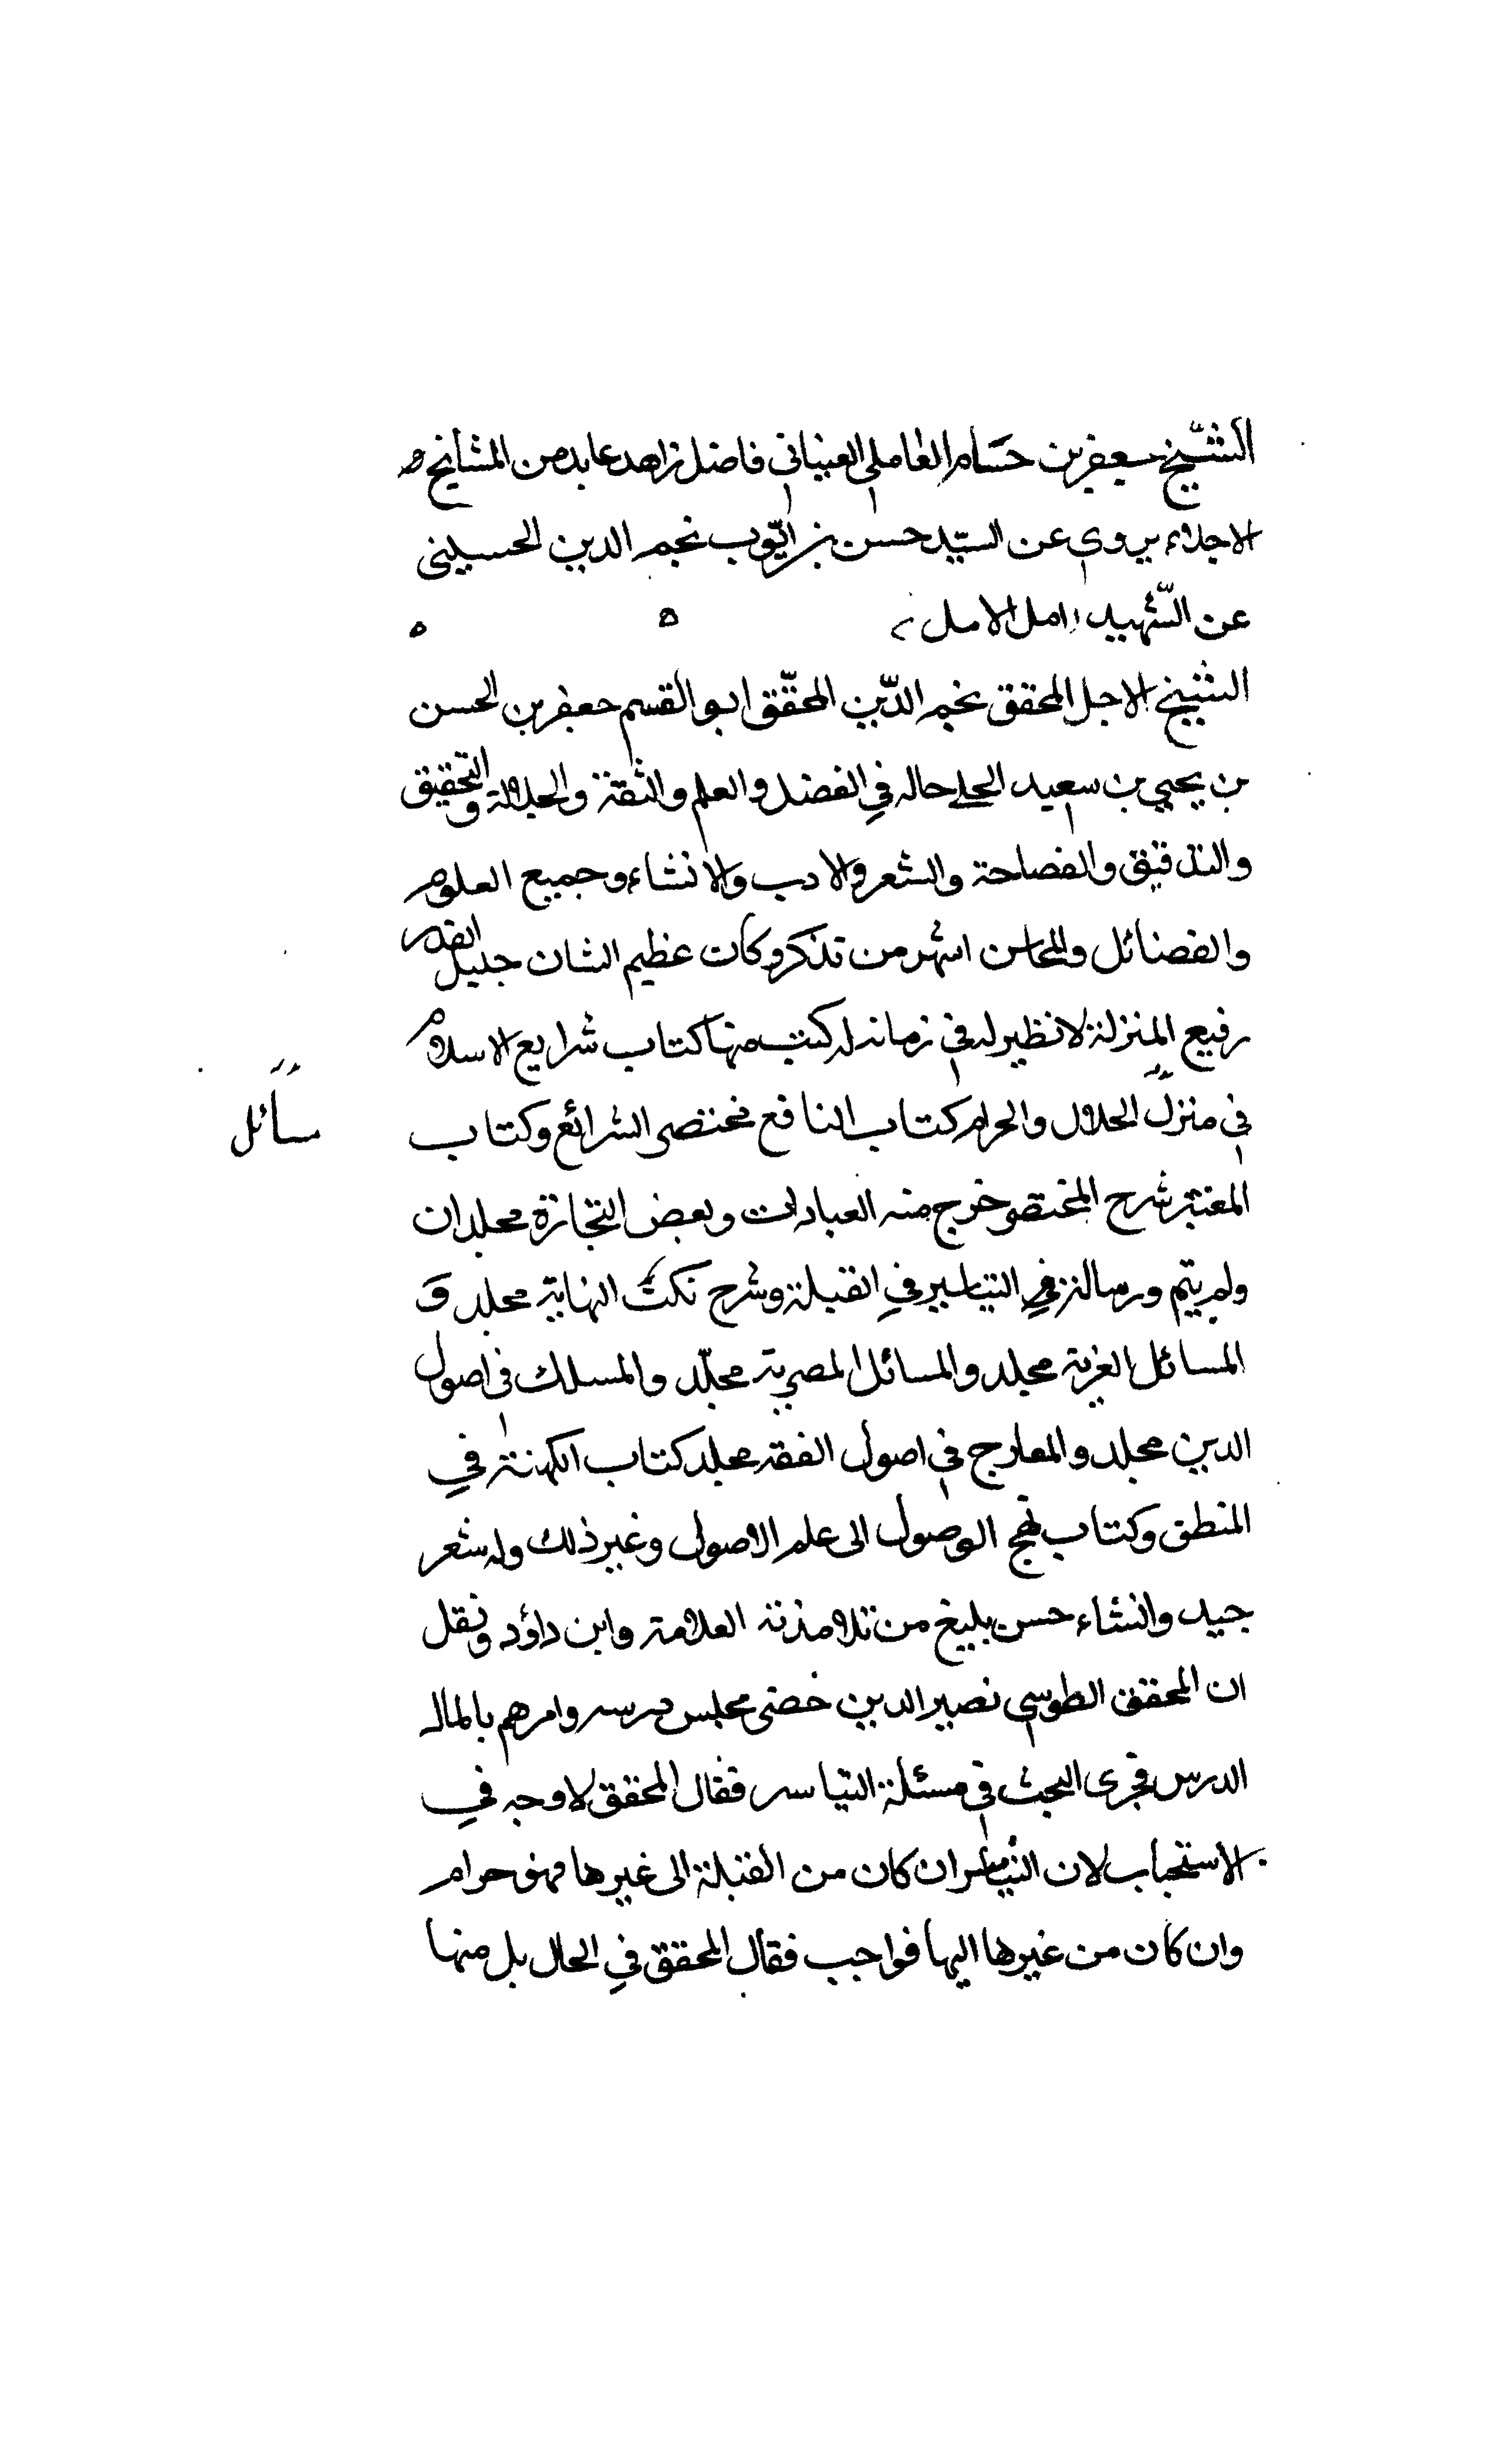 الشّيخ جعفر بن حسام العاملي العيناثي فاضل زاهد عابد من المشايخ
الاجلاء يروي عن السّيّد حسن بن ايّوب نجم الدين الحسيني
عن الشّهيد امل الامل
الشيخ الاجل المحقق نجم الدّين المحقّق ابو القسم جعفر بن الحسن
بن يحيى بن سعيد الحلي حاله في الفضل والعلم والثقة والجلالة والتحقيق
والتدقيق والفصاحة والشعر والادب والانشاء وجميع العلوم
والفضائل والمحاسن اشهر من تذكر وكان عظيم الشان جليل القدر
رفيع المنزلة لا نظير له في زمانه له كتب منها كتاب شرايع الاسلام
في منزل الحلال والحرام كتاب النافع مختصر الشرائع وكتاب
مسائل
المعتبر شرح المختصر خرج منه العبادات وبعض التجارة مجلدان
ولم يتم ورسالة في التياسر في القبلة وشرح نكت النهاية مجلد و
المسائل الغرية مجلد والمسائل المصرية مجلّد والمسلك في اصول
الدين مجلد والمعارج في اصول الفقه مجلد كتاب الكهنة في
المنطق وكتاب نهج الوصول الى علم الاصول وغير ذلك وله شعر
جيد وانشاء حسن بليغ من تلامذته العلامة وابن داؤد ونقل
ان المحقق الطوسي نصير الدين حضر مجلس درسه وامرهم باكمال
الدرس فجرى البحث في مسئلة التياسر فقال المحقق لا وجه في
الاستحباب لان التياسر ان كان من القبلة الى غيرها فهو حرام
وان كان من غيرها اليها فواجب فقال المحقق في الحال بل منها